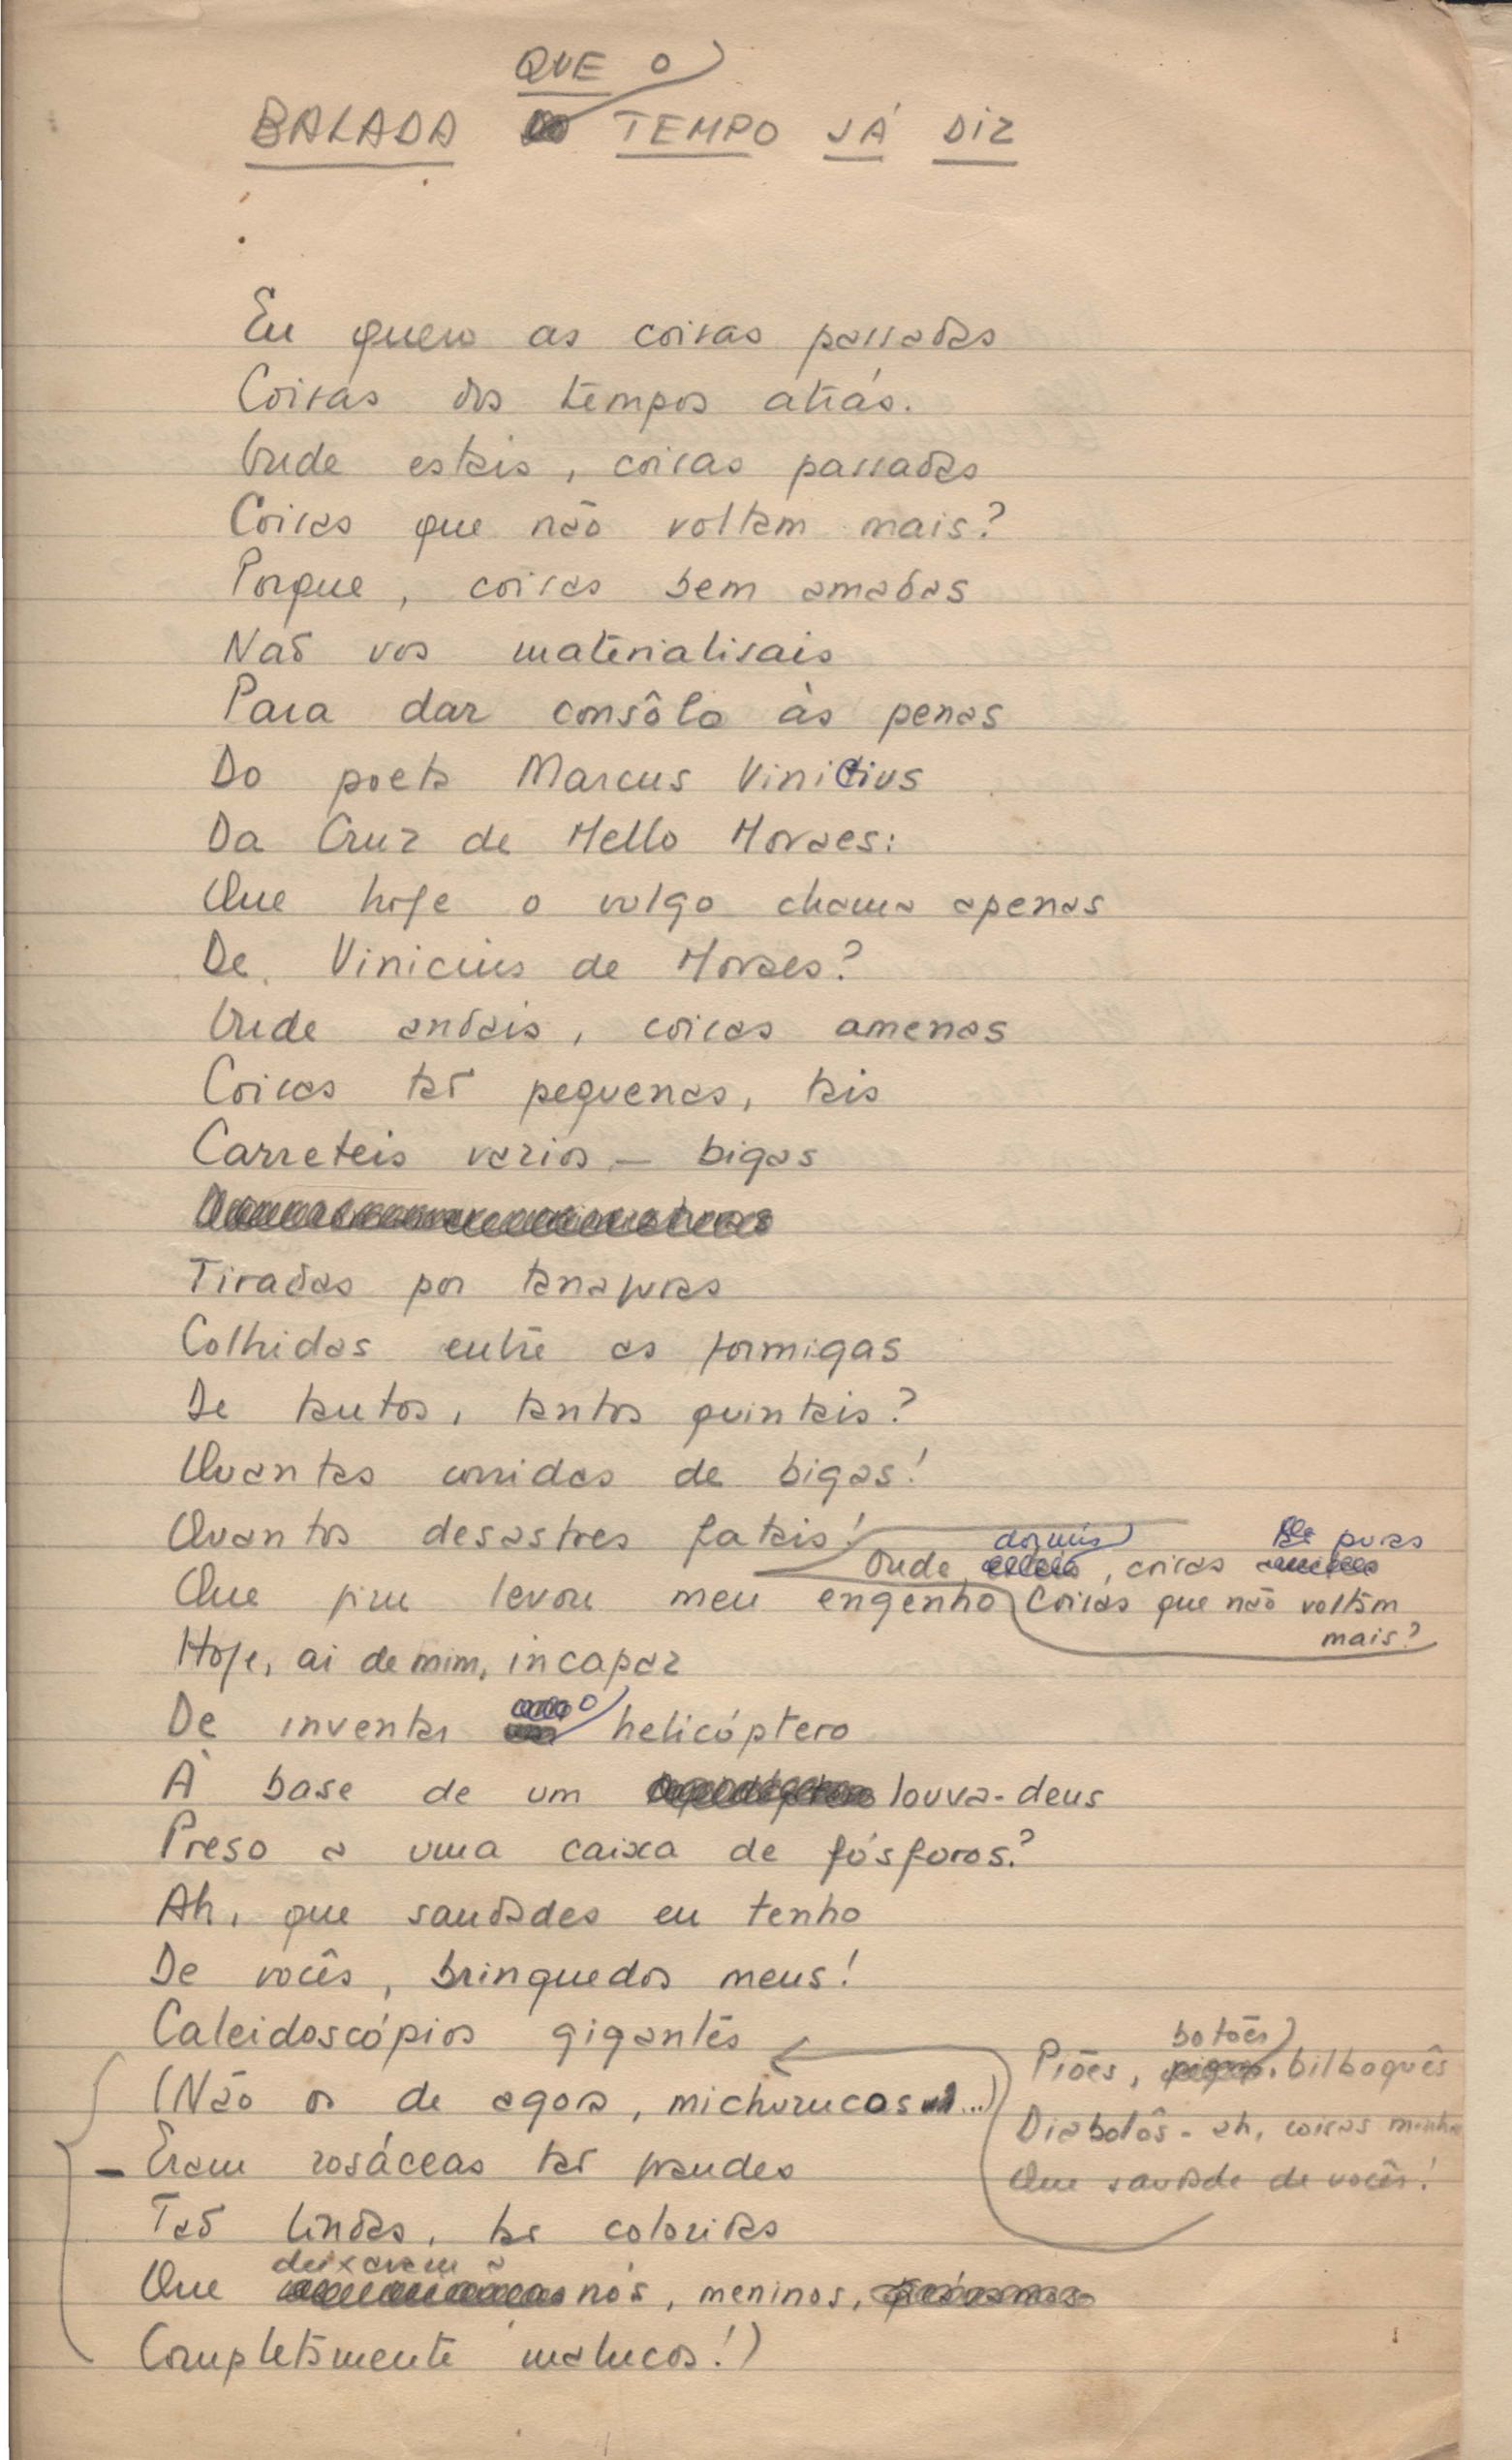 BALADA QUE O TEMPO JÁ DIZ
Eu quero as coisas passadas
Coisas dos tempos atrás.
Onde estais, coisas passadas
Coisas que não voltam mais?
Porque, coisas bem amadas
Não vos materialisais
Para dar consôlo às penas
Do poeta Marcus Vinicius
Da Cruz de Mello Moraes:
Que hoje o vulgo chama apenas
De Vinicius de Moraes?
Onde andais, coisas amenas
Coisas tão pequenas, tais
Carreteis vazios – bigas
Tiradas por tanajuras
Colhidas entre as formigas
De tantos, tantos quintais?
Quantas corridas de bigas!
Quantos desastres fatais!
Onde dormis, coisas puras
Coisas que não voltam
mais?
Que fim levou meu engenho
Hoje, ai de mim, incapaz
De inventar o helicóptero
À base de um louva-deus
Preso a uma caixa de fósforos?
Ah, que saudades eu tenho
De vocês, brinquedos meus!
Caleidoscópios gigantes
Piões, botões, bilboquês
Diabolôs - ah, coisas minhas
Que saudade de vocês!
(Não os de agora, michurucos...)
– Eram rosáceas tão grandes
Tão lindas, tão coloridas
Que deixavam a nós, meninos,
Completamente malucos!)